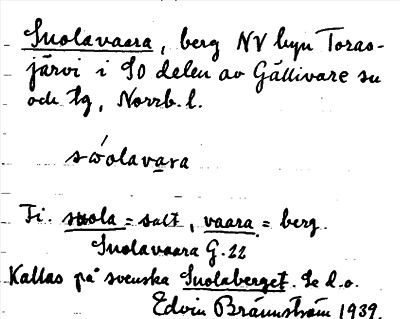 Suolavaara, berg NV byn Toras-
järvi i SO delen av Gällivare sn
och tg, Norrb. l.
swólavara
Fi. suola = salt, vaara = berg.
Suolavaara G. 22
Kallas på svenska Suolaberget. Se d.o.
Edvin Brännström 1939.